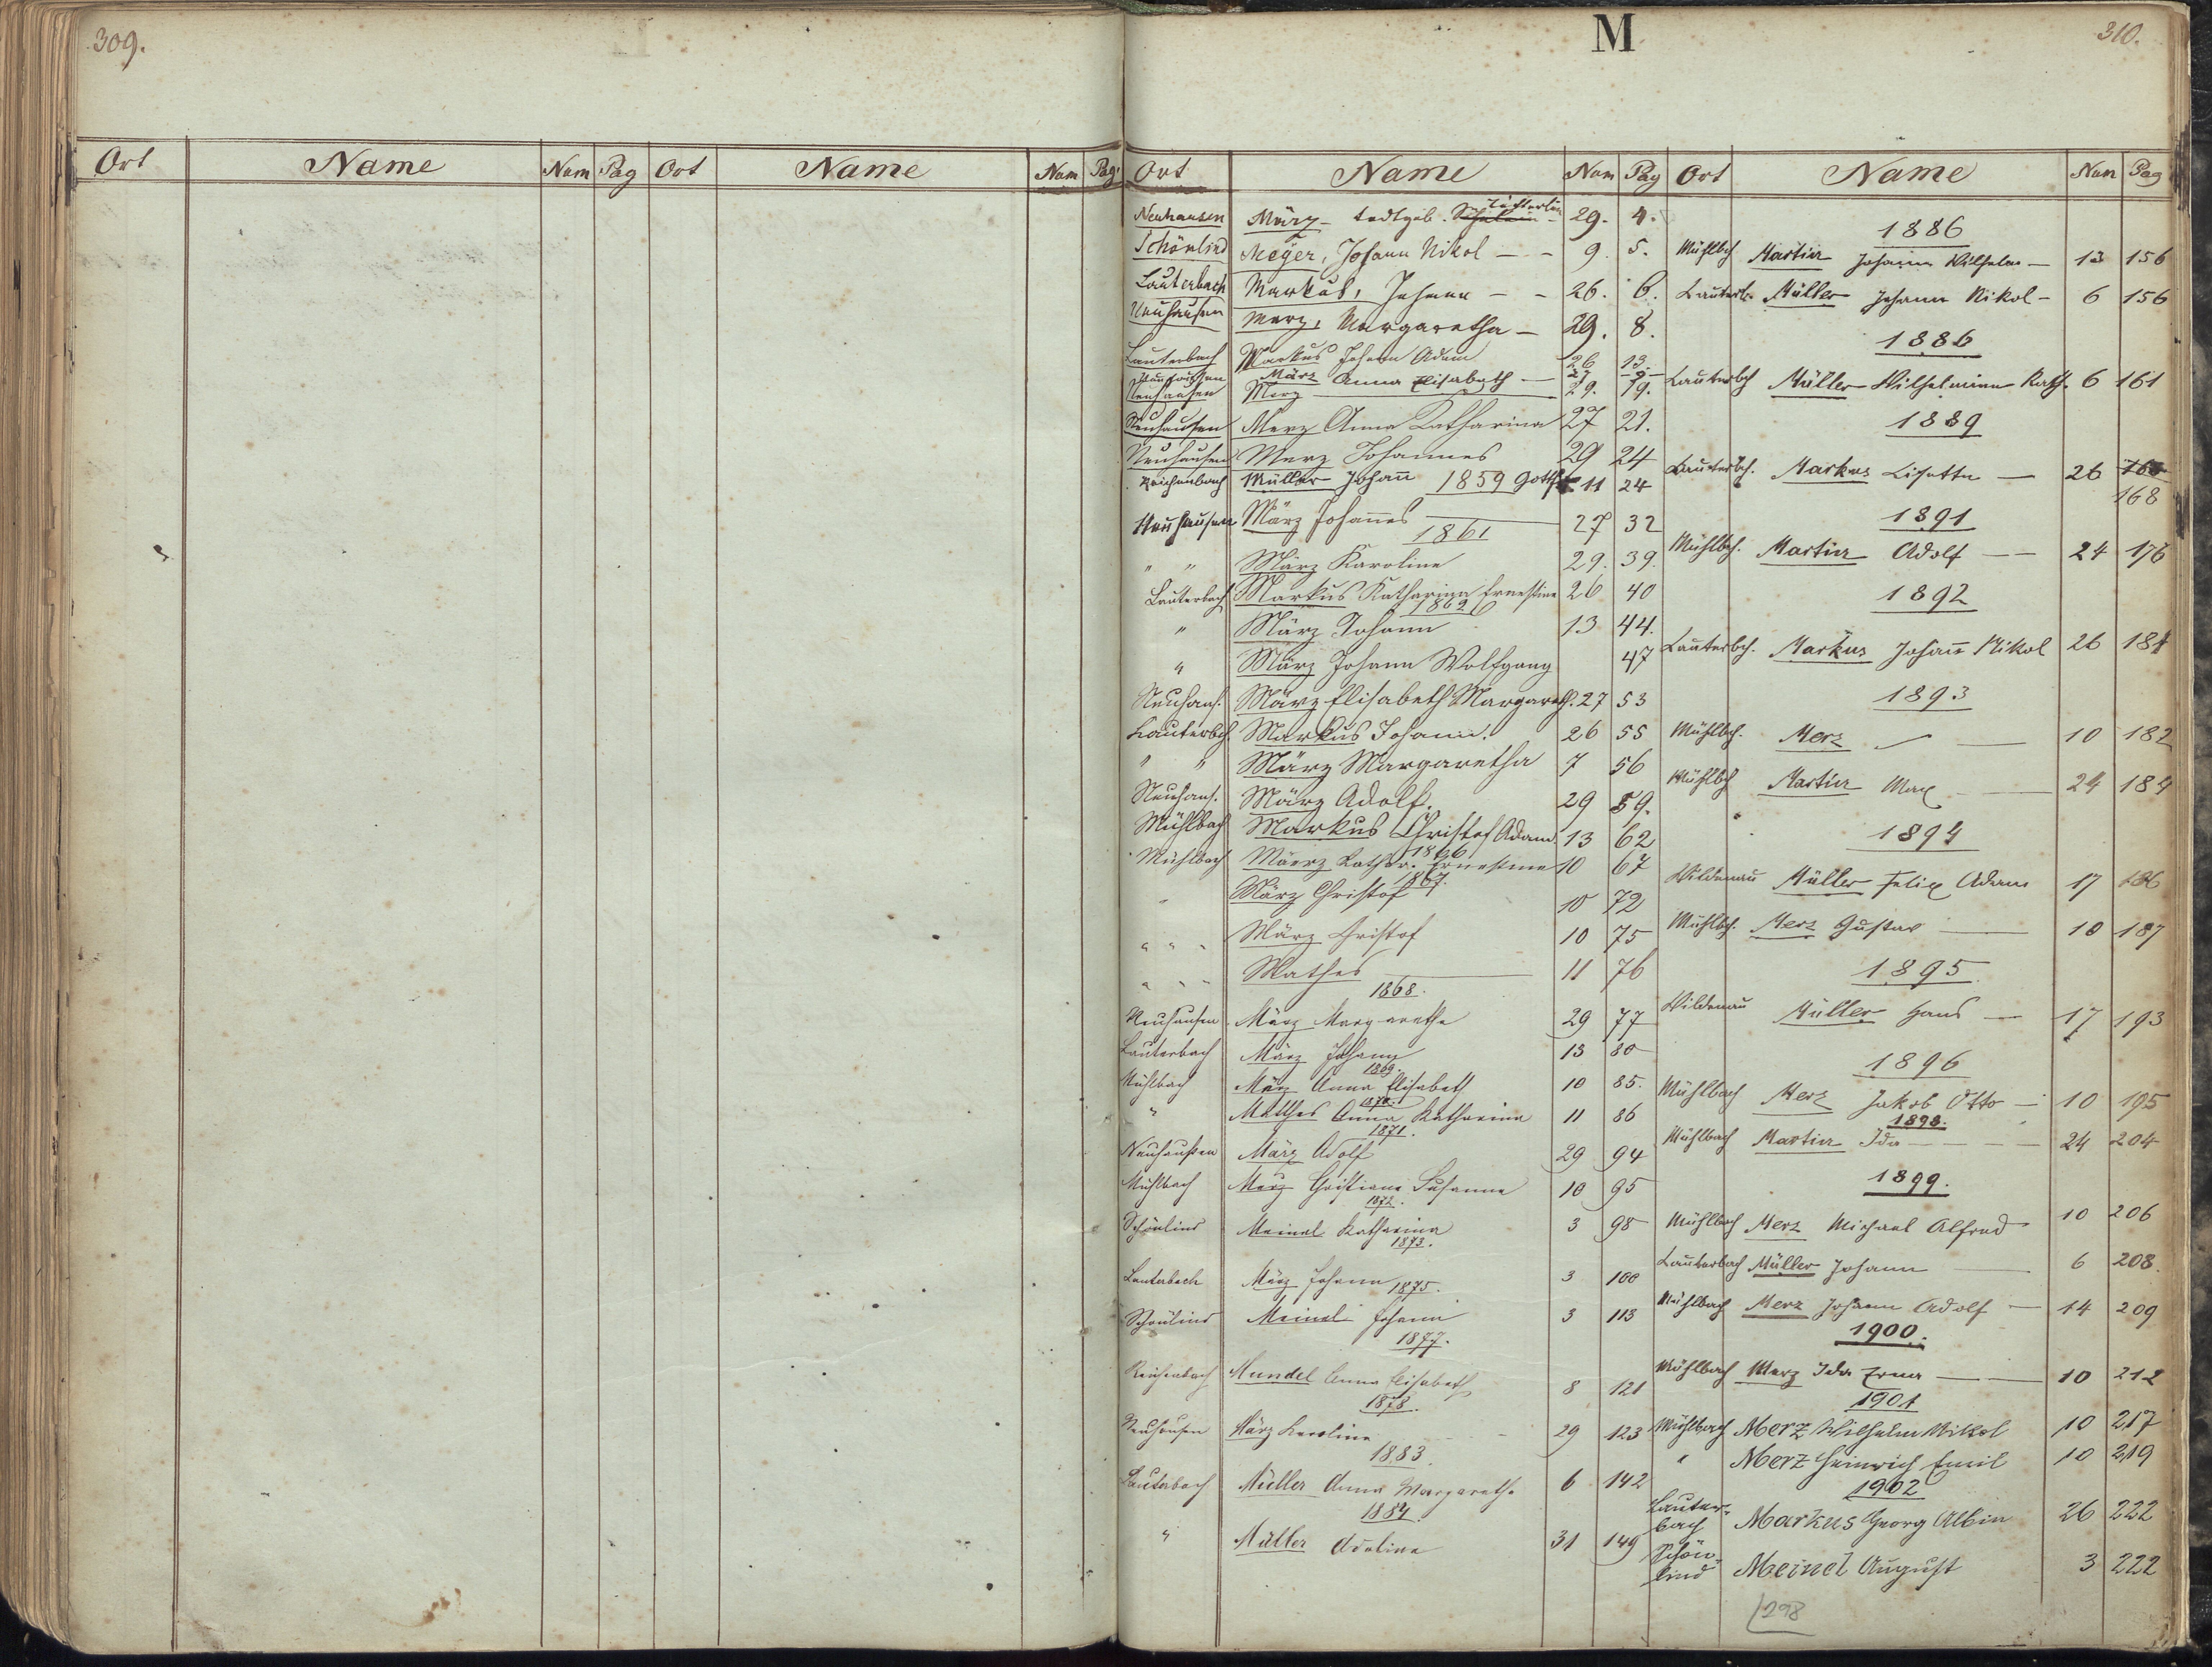 309.
M
310.
Ort Name Num Pag Ort Name Num Pag.
Ort Name Num Pag Ort Name Num Pag
Neuhausen März todtgeb. Töchterlein 29. 4.
Schönlind Meÿer, Johann Nikol – – 9. 5.
Lauterbach Markus, Johann – – 26. 6.
Neuhausen Merz, Margaretha – 29. 8.
Lauterbach Markus Johann Adam 26 13.
Neuhausen März Anna Elisabeth – 27
Neuhausen Merz 29. 19.
Neuhausen Merz Anna Katharina 27 21.
Neuhausen Merz Johannes 29 24
Reichenbach Müller Johañ 1859 11 24
Neuhausen März Johañes 27 32
1861
" " März Karoline 29. 39.
Lauterbach Markus Katharina Ernestine 26 40
1862
" März Johann 13 44.
" März Johann Wolfgang 47
Neuhaus. März Elisabeth Margareth. 27 53
Lauterbch. Markus Johann. 26 55
" " März Margaretha 7 56
Neuhaus. März Adolf. 29 59.
Mühlbach Markus Christof Adam 13 62
1866
Mühlbach Maerz Kathar. Ernestine 10 67
1867.
" März Christof 10 72
" " " März Christof 10 75
" " " Mathes 11 76
1868.
Neuhausen März Margaretha 29 77
Lauterbach März Johann 13 80
1869.
Mühlbach März Anna Elisabeth 10 85.
1870.
" Matthes Anna Katharina 11 86
1871.
Neuhausen März Adolf 29 94
Mühlbach Merz Christiane Susanna 10 95
1872.
Schönlind Meinel Katharina 3 98
1873.
Lauterbach März Johann 3 100
1875.
Schönlind Meinel Johann 3 113
1877.
Reichenbach Mundel Anna Elisabeth 8 121
1878.
Neuhausen März Karoline 29 123
1883.
Lauterbach Müller Anna Margaretha 6 142
1884.
" Müller Adeline 31 149
1886
Mühlbch Martin Johann Wilhelm – 13 156
Lauterb. Müller Johann Nikol – 6 156
1886
Lauterbch Müller Wilhelmine Kath. 6 161
1889
Lauterbch. Markus Lisette – 26 168
1891
Mühlbch. Martin Adolf – – 24 176
1892
Lauterbch. Markus Johañ Nikol 26 181
1893
Mühlbch. Merz – 10 182
Mühlbch Martin Max – 24 184
1894
Wildenau Müller Felix Adam 17 186
Mühlbch. Merz Gustav – 10 187
1895.
Wildenau Müller Hans – 17 193
1896
Mühlbach Merz Jakob Otto – 10 195
1898.
Mühlbach Martin Ida – – – 24 204
1899.
Mühlbach Merz Michael Alfred 10 206
Lauterbach Müller Johann – 6 208.
Mühlbach Merz Johann Adolf – 14 209
1900.
Mühlbach Merz Ida Erna – 10 212
1901
Mühlbach Merz Wilhelm Nikol 10 217
" Merz Heinrich Emil 10 219
1902
Lauter-
bach Markus Georg Albin 26 222
Schön-
lind Meinel August 3 222
298